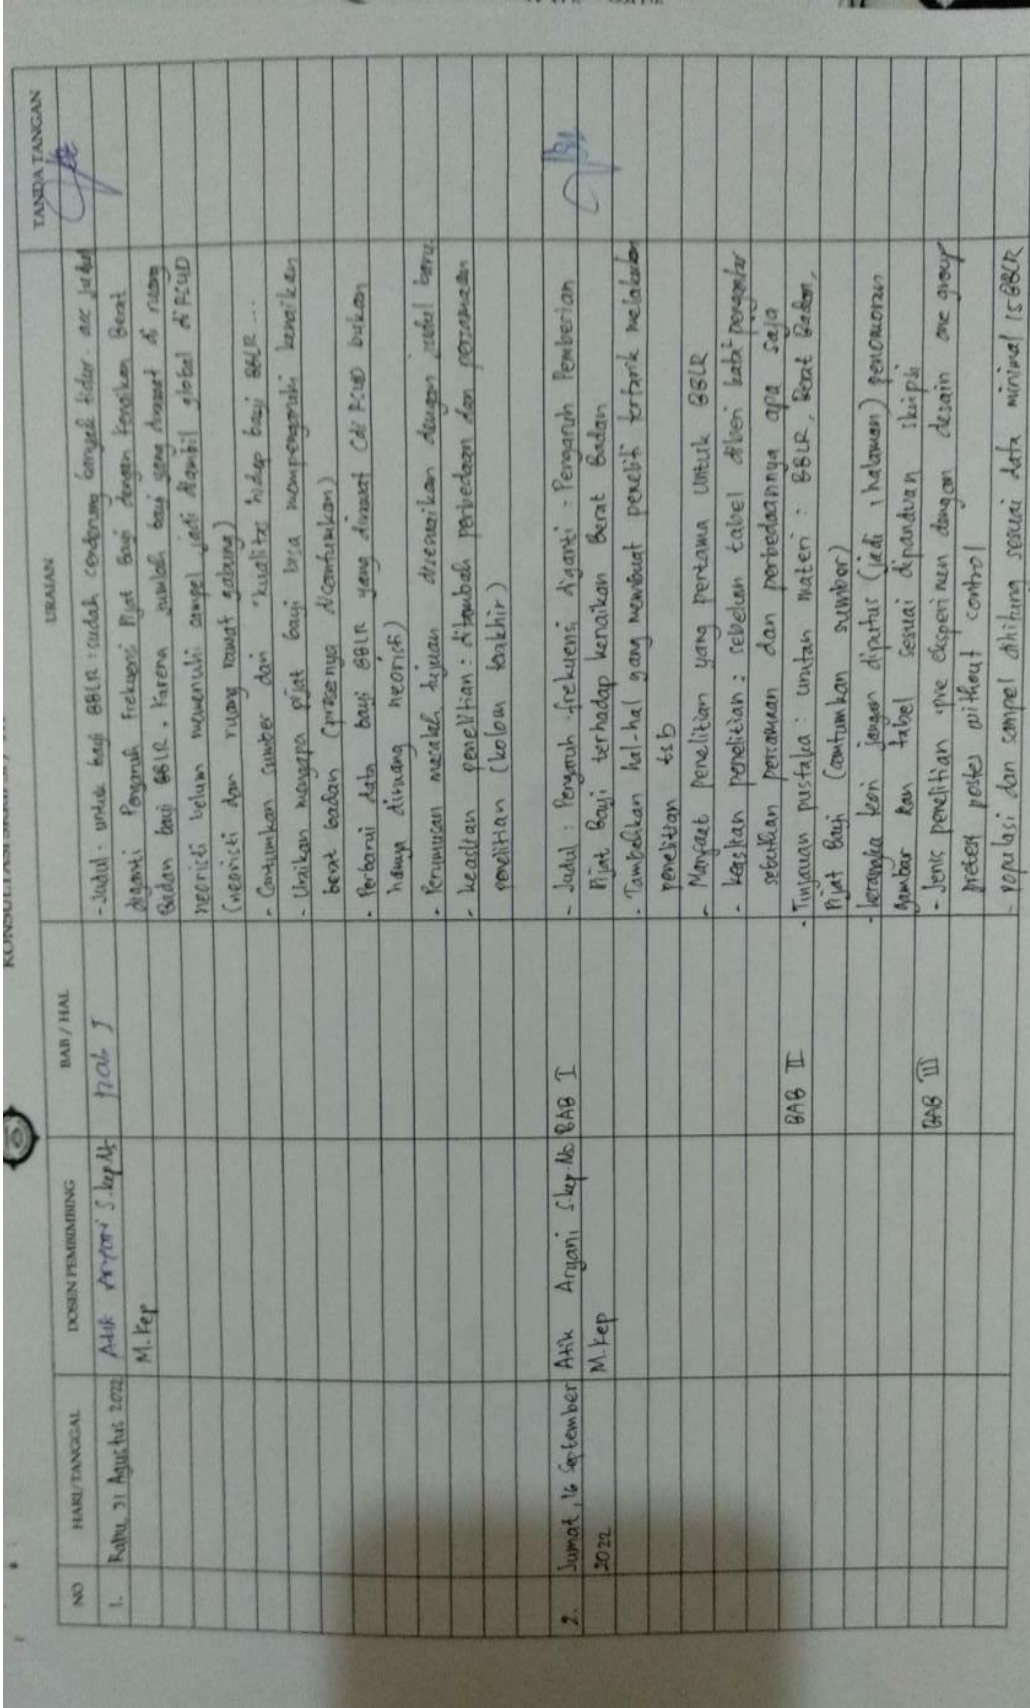 KONSULTASI
NO HARI/TANGGAL DOSEN PEMBIMBING BAB / HAL URAIAN TANDA TANGAN
1. Rabu, 31 Agustus 2022 Atik Aryani S.kep Ns bab I - Judul : untuk bayi BBLR : sudah cenderung banyak tidur. acc judul
M. Kep diganti Pengaruh Frekuensi Pijat Bayi dengan kenaikan Berat
Badan bayi BBLR. Karena jumlah bayi yang dirawat di ruang
neoristi belum memenuhi sampel jadi diambil global di RSUD
(neoristi dan ruang rawat gabung)
- Cantumkan sumber dari "kualitas hidup bayi BBLR ....
- Uraikan mengapa pijat bayi bisa mempengaruhi kenaikan
berat badan (prosesnya dicantumkan)
- Perbarui data bayi BBLR yang dirawat (di RSUD bukan
hanya diruang neoristi)
- Perumusan masalah tujuan disesuaikan dengan judul baru
- keaslian penelitian : ditambah perbedaan dan persamaan
penelitian (kolom terakhir)
2. Jumat, 16 September Atik Aryani S.kep.Ns BAB I - Judul : Pengaruh frekuensi diganti : Pengaruh Pemberian
2022 M.kep Pijat Bayi terhadap kenaikan Berat Badan
- Tambahkan hal-hal yang membuat peneliti tertarik melakukan
penelitian tsb
- Manfaat penelitian yang pertama untuk BBLR
- keaslian penelitian : sebelum tabel diberi kata² pengantar
sebutkan persamaan dan perbedaannya apa saja
BAB II - Tinjauan pustaka : urutan materi : BBLR, Berat Badan,
Pijat Bayi (cantumkan sumber)
- kerangka teori jangan diputus (jadi 1 halaman) penomoran
gambar dan tabel sesuai dipanduan skripsi
BAB III - Jenis penelitian : pre eksperimen dengan desain one group
pretest postes without control
- populasi dan sampel dihitung sesuai data minimal 15 BBLR